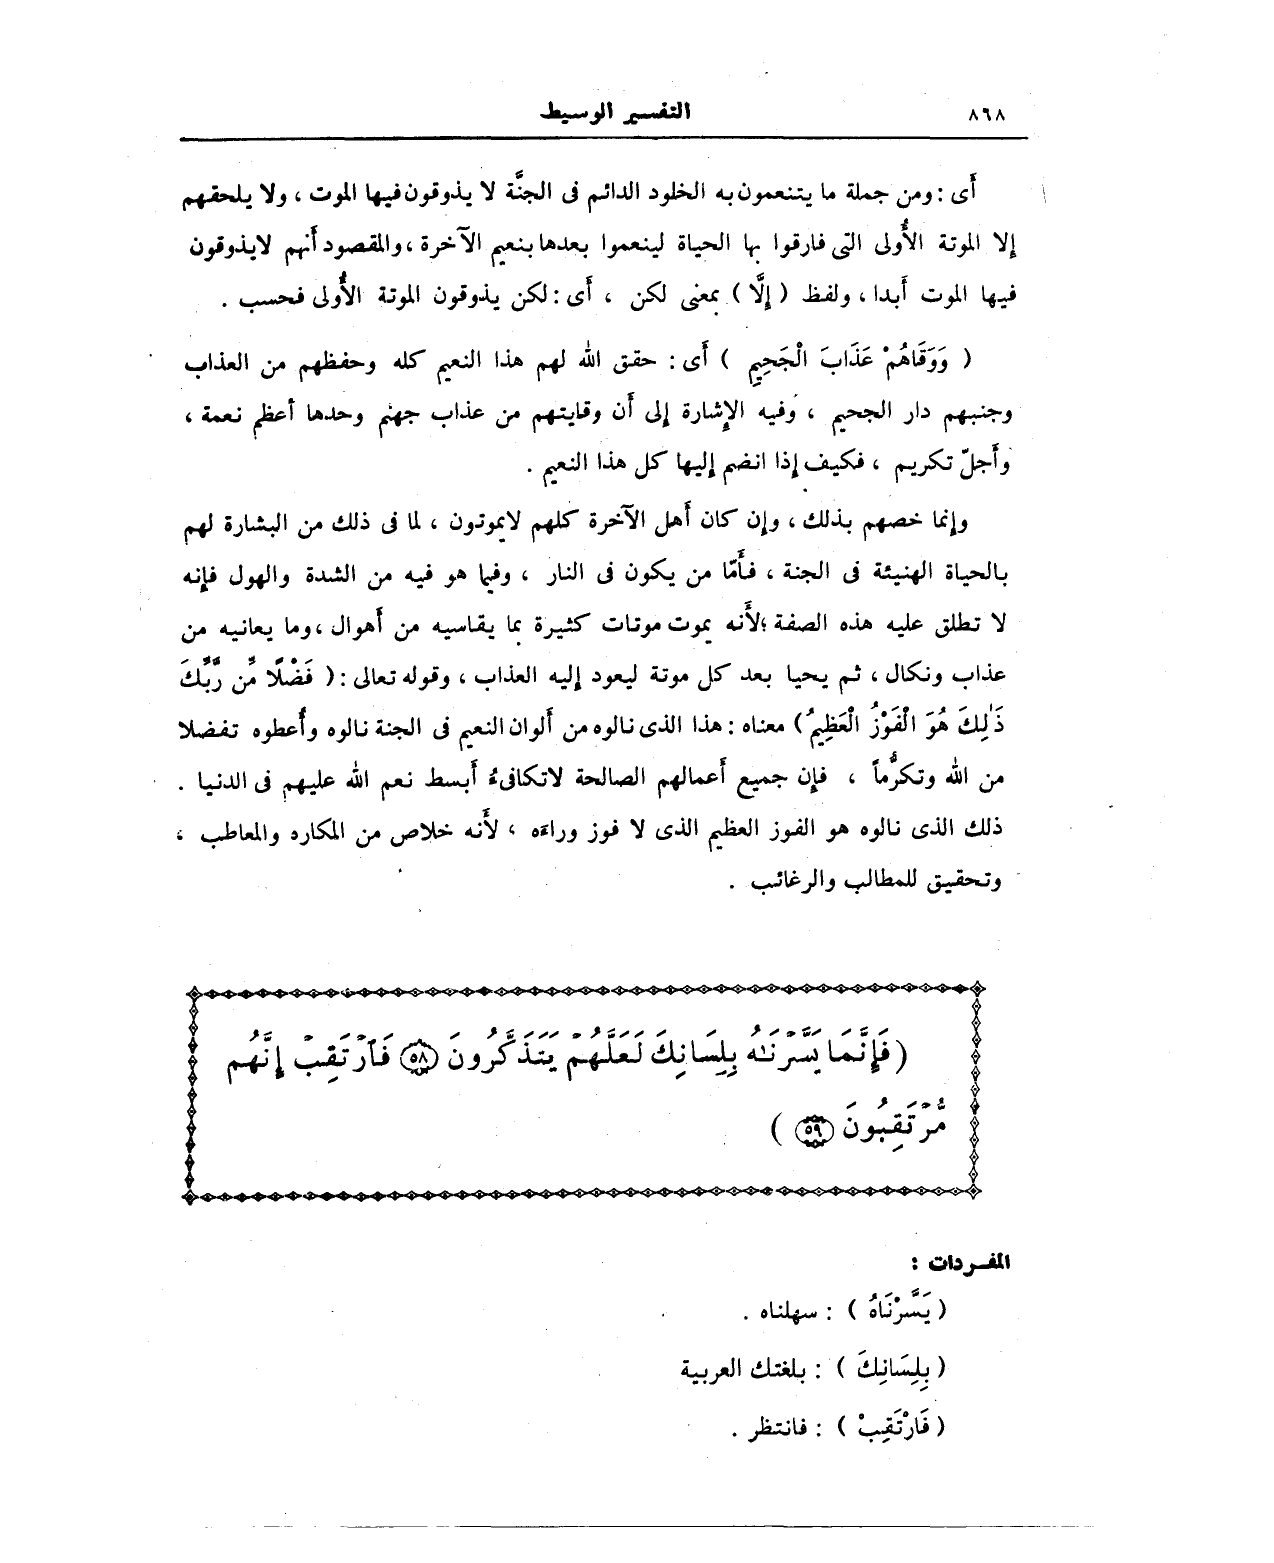 ٨٦٨
التفسير الوسيط
أَى : ومن جملة ما يتنعمون به الخلود الدائم فى الجنَّة لا يذوقون فيها الموت ، ولا يلحقهم
إلا الموتة الأُولى التى فارقوا بها الحياة لينعموا بعدها بنعيم الآخرة ، والمقصود أنهم لايذوقون
فيها الموت أبدا ، ولفظ ( إِلَّا ) بمعنى لكن ، أَى : لكن يذوقون الموتة الأُولى فحسب .
( وَوَقَاهُمْ عَذَابَ الْجَحِيمِ ) أَى : حقق الله لهم هذا النعيم كله وحفظهم من العذاب
وجنبهم دار الجحيم ، وفيه الإشارة إلى أَن وقايتهم من عذاب جهنم وحدها أعظم نعمة ،
وأَجلّ تكريم ، فكيف إذا انضم إليها كل هذا النعيم .
وإنما خصهم بذلك ، وإن كان أَهل الآخرة كلهم لايموتون ، لما فى ذلك من البشارة لهم
بالحياة الهنيئة فى الجنة ، فأَمّا من يكون فى النار ، وفيما هو فيه من الشدة والهول فإنه
لا تطلق عليه هذه الصفة ؛لأَنه يموت موتات كثيرة بما يقاسيه من أَهوال ، وما يعانيه من
عذاب ونكال ، ثم يحيا بعد كل موتة ليعود إليه العذاب ، وقوله تعالى : ( فَضْلًا مِّن رَّبِّكَ
ذَٰلِكَ هُوَ الْفَوْزُ الْعَظِيمُ ) معناه : هذا الذى نالوه من ألوان النعيم فى الجنة نالوه وأُعطوه تفضلا
من الله وتكرُّماً ، فإن جميع أَعمالهم الصالحة لاتكافىءُ أَبسط نعم الله عليهم فى الدنيا .
ذلك الذى نالوه هو الفوز العظيم الذى لا فوز وراءه ، لأَنه خلاص من المكاره والمعاطب ،
وتحقيق للمطالب والرغائب .
( فَإِنَّمَا يَسَّرْنَٰهُ بِلِسَانِكَ لَعَلَّهُمْ يَتَذَكَّرُونَ ٥٨ فَٱرْتَقِبْ إِنَّهُم
مُّرْتَقِبُونَ ٥٩ )
المفــردات :
( يَسَّرْنَاهُ ) : سهلناه .
( بِلِسَانِكَ ) : بلغتك العربية
( فَارْتَقِبْ ) : فانتظر .